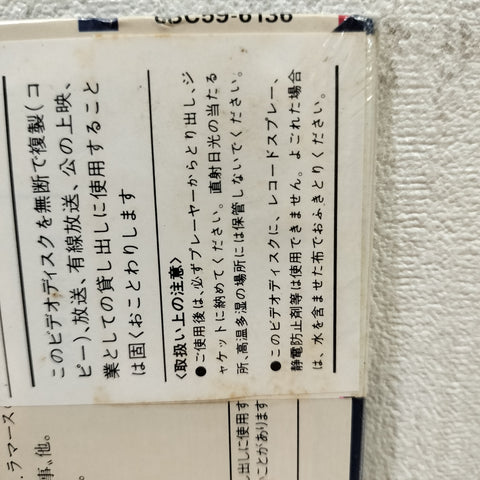 68C59-6136
このビデオディスクを無断で複製(コ
ピー)、放送、有線放送、公の上映、
業としての貸し出しに使用すること
は固くおことわりします
〈取扱い上の注意〉
●ご使用後は、必ずプレーヤーからとり出し、ジ
ャケットに納めてください。直射日光の当たる
所、高温多湿の場所には保管しないでください。
●このビデオディスクに、レコードスプレー、
静電防止剤等は使用できません。よごれた場合
は、水を含ませた布でおふきとりください。
ラマース
事〟他。
し出しに使用す
ことがあります